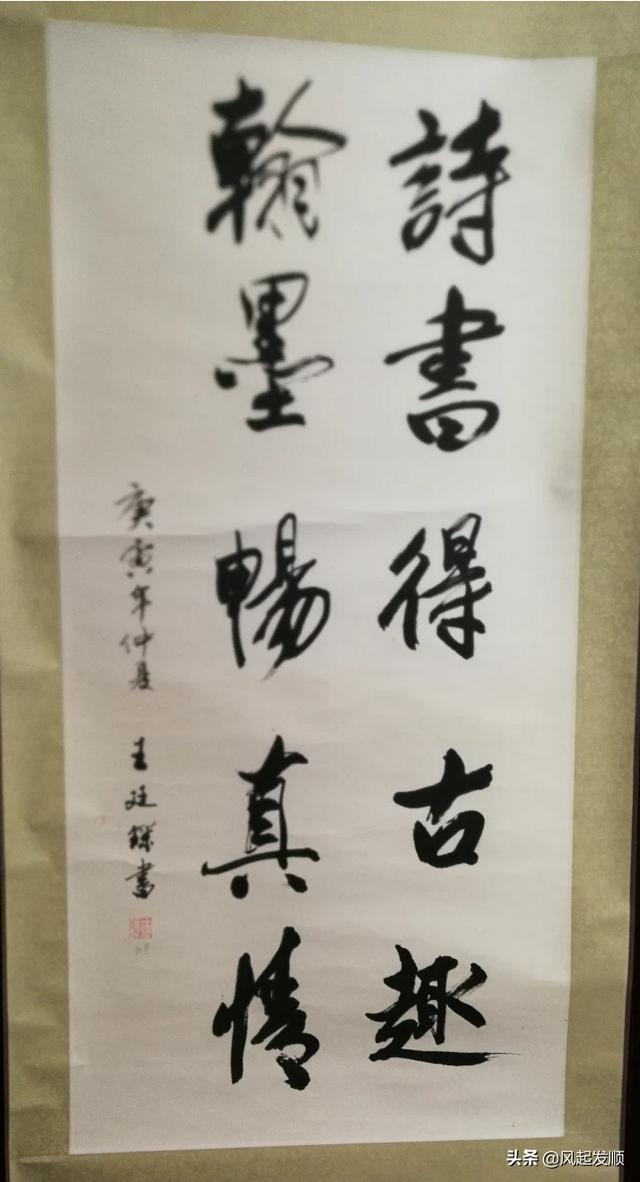 詩書得古趣
翰墨暢真情
庚寅年仲夏 王廷鏶書
头条 @风起发顺